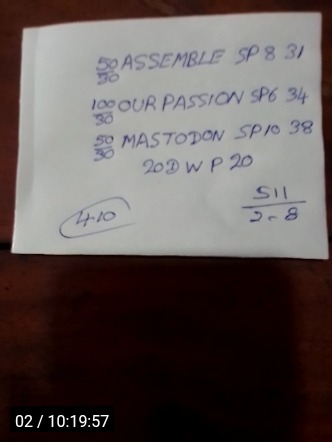 50/30 ASSEMBLE SP 8 31
100/30 OUR PASSION SP6 34
50/30 MASTODON SP10 38
20D W P 20
4-10
S11
2-8
02 / 10:19:57